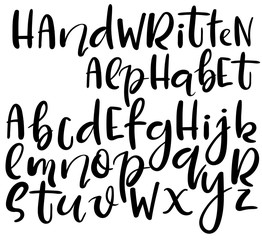 HANdWRitteN
AlpHabET
AbcdEfgHijk
lmnopqyR
StuvwxyZ